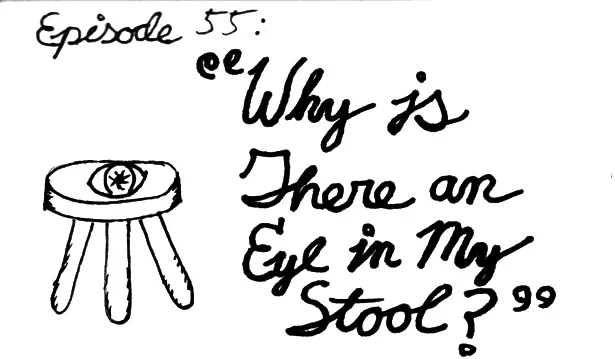 Episode 55:
"Why is
There an
Eye in My
Stool?"